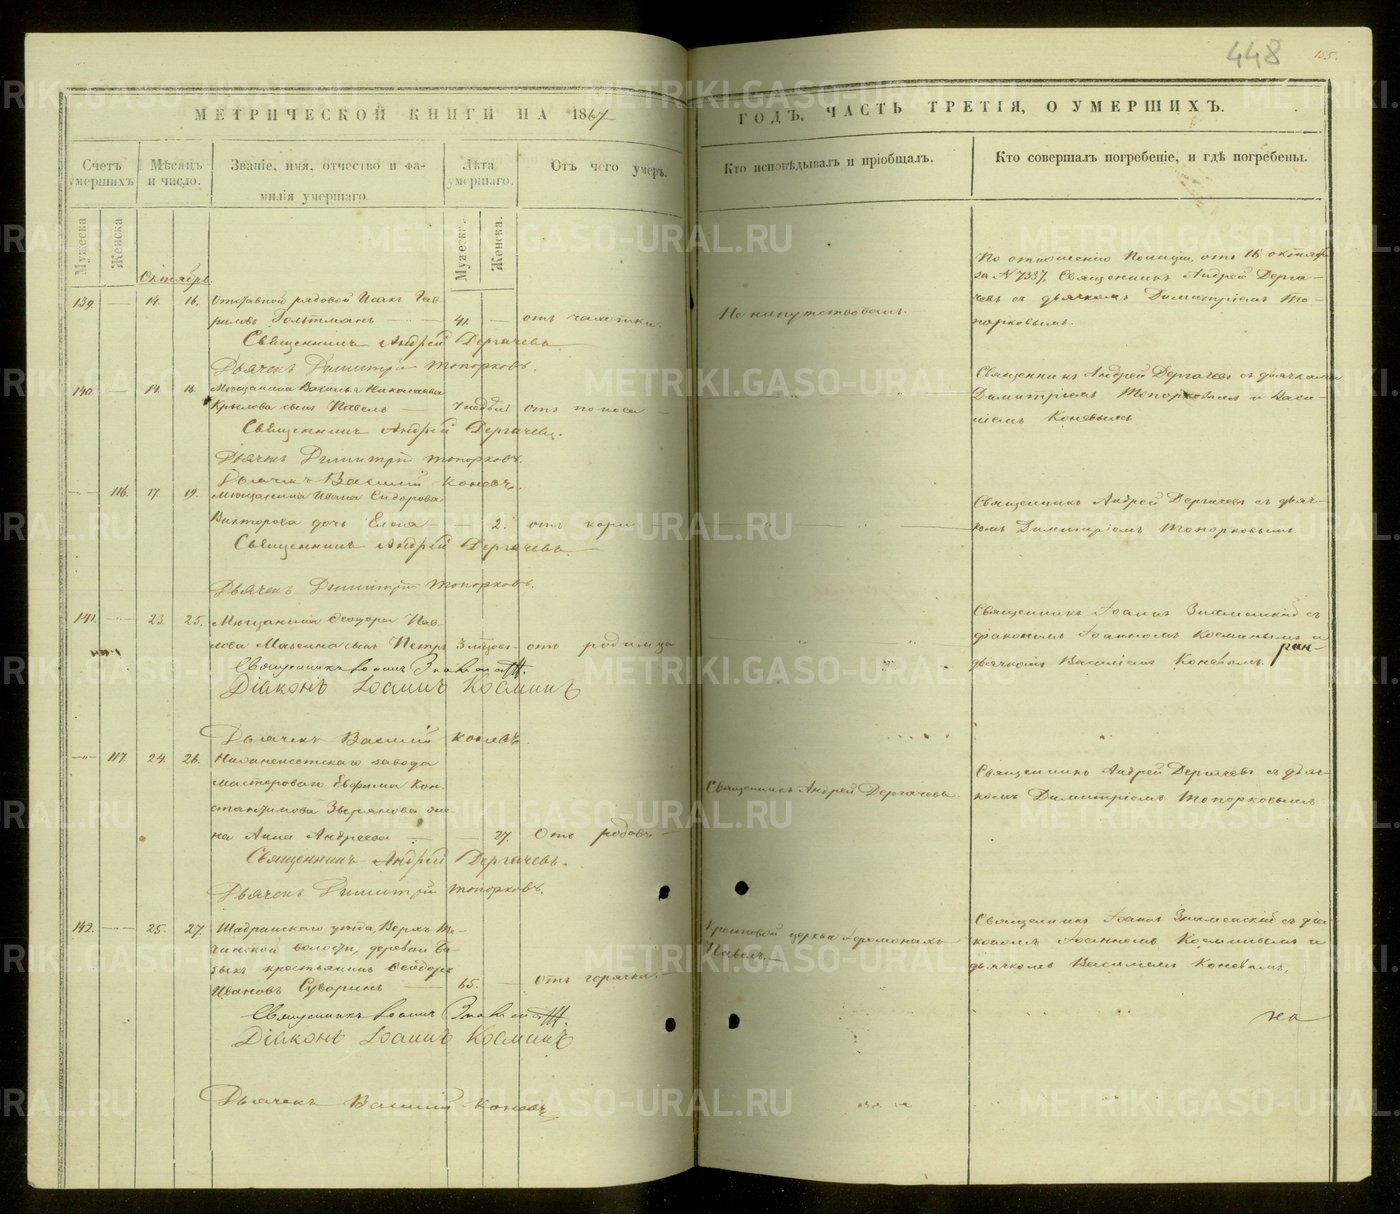 448
135.
МЕТРИЧЕСКОЙ КНИГИ НА 1867
ГОДЪ, ЧАСТЬ ТРЕТІЯ, О УМЕРШИХЪ.
Счетъ умершихъ.
Мѣсяцъ и число.
Званіе, имя, отчество и фамилія умершаго
Лѣта умершаго.
Отъ чего умеръ.
Кто исповѣдывалъ и пріобщалъ.
Кто совершалъ погребеніе, и гдѣ погребены.
Мужеска
Женска
Мужеска.
Женска.
Октябрь.
139. — 14. 16. Отставной рядовой Исакъ Гав-
риловъ Гольтманъ — 41. — отъ чахотки.
Не напутствованъ. —
По отношенію Полиціи, отъ 16 октября
за N 7337, Священникъ Андрей Держа-
чевъ съ дьячкомъ Димитріемъ То-
порковымъ.
Священникъ Андрей Дергачевъ
Дьячекъ Димитрій Топорковъ.
140. — 14. 16. Мѣщанина Василья Николаева
Крылова сынъ Павелъ — отъ поноса —
Священникъ Андрей Дергачевъ съ дьячками
Димитріемъ Топорковымъ и Васи-
ліемъ Коневымъ
Священникъ Андрей Дергачевъ.
Дьячекъ Димитрій Топорковъ.
Дьячекъ Василій Коневъ.
— 116. 17. 19. Мѣщанина Ивана Сидорова
Викторова дочь Елена — — 2. отъ кори
Священникъ Андрей Дергачевъ съ дьяч-
комъ Димитріемъ Топорковымъ
Священникъ Андрей Дергачевъ
Дьячекъ Димитрій Топорковъ.
141. — 23. 25. Мѣщанина Ѳеодора Пав-
лова сынъ Петръ 3 мѣсяц. — отъ родимца
Священникъ Іоаннъ Знаменскій съ
діакономъ Іоанномъ Косминымъ и
дьячкомъ Василіемъ Коневымъ.
Священникъ Іоаннъ
Діаконъ Іоаннъ Косминъ
Дьячекъ Василій Коневъ.
— 117. 24. 26. Нижнеисетскаго завода
мастероваго Евфима Кон-
стантинова Зырянова же-
на Анна Андреева — — 27. Отъ родовъ —
Священникъ Андрей Дергачевъ
Священникъ Андрей Дергачевъ съ дьяч-
комъ Димитріемъ Топорковымъ
Священникъ Андрей Дергачевъ.
Дьячекъ Димитрій Топорковъ.
142. — 25. 27. Шадринскаго уѣзда, Верхъ Те-
чинской волости, деревни
крестьянинъ Ѳеодоръ
Ивановъ Суворинъ — 65. — отъ горячки. —
Крестовой церкви Іеромонахъ
Павелъ. —
Священникъ Іоаннъ Знаменскій съ діа-
кономъ Іоанномъ Косминымъ и
дьячкомъ Василіемъ Коневымъ.
Священникъ Іоаннъ
Діаконъ Іоаннъ Косминъ
Дьячекъ Василій Коневъ
METRIKI.GASO-URAL.RU